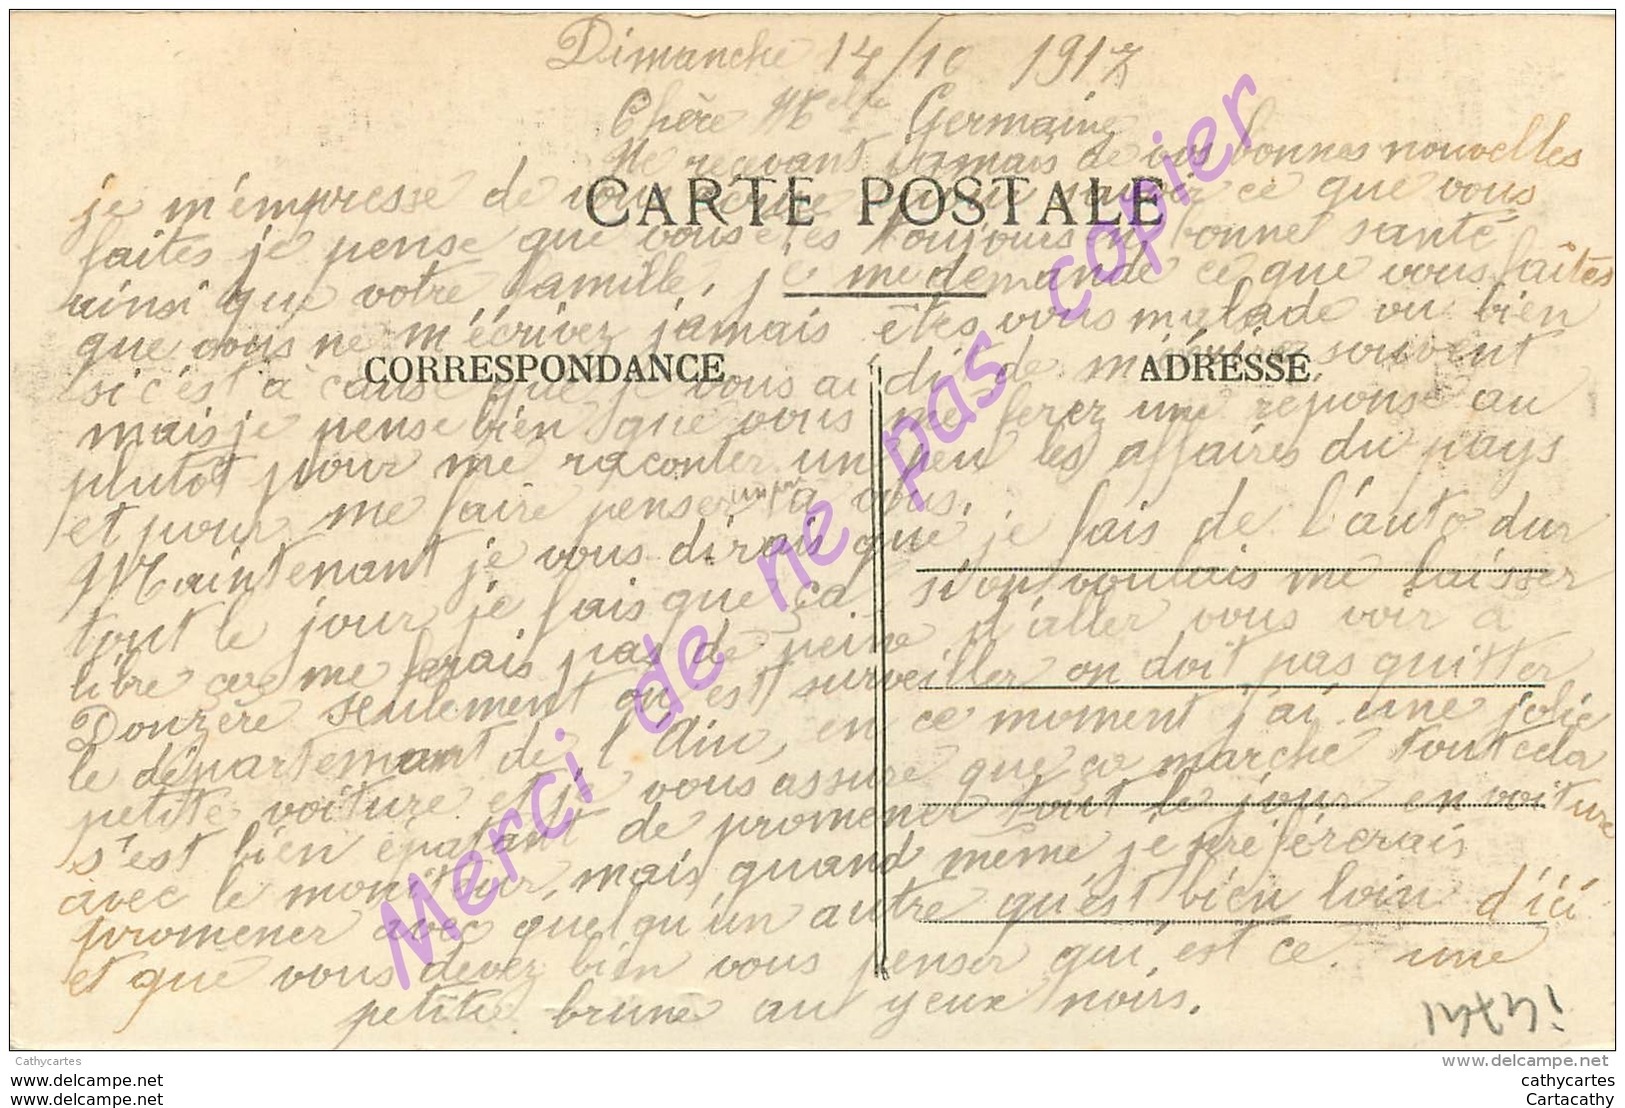 Dimanche 14/10 1917
Chère Melle Germaine
Ne recevant jamais de vos bonnes nouvelles
je m'empresse de vous écrire pour savoir ce que vous
CARTE POSTALE
faites je pense que vous êtes toujours en bonne santé
ainsi que votre famille, je me demande ce que vous faîtes
que vous ne m'écrivez jamais êtes vous malade ou bien
CORRESPONDANCE
ADRESSE
si c'est à cause que je vous ai dit de m'écrire souvent
mais je pense bien que vous me ferez une réponse au
plutôt pour me raconter un peu les affaires du pays
et pour me faire penser un peu à vous.
Maintenant je vous dirais que je fais de l'auto dur
tout le jour je fais que ça si on voulais me laisser
libre ça me ferais pas de peine d'aller vous voir à
Donzère seulement on est surveiller on doit pas quitter
le département de l'Ain, en ce moment j'ai une jolie
petite voiture et je vous assure que ça marche tout cela
s'est bien épatant de promener tout le jour en voiture
avec le moniteur, mais quand même je préférerais
promener avec quelqu'un autre qu'est bien loin d'ici
et que vous devez bien vous penser qui est ce. une
petite brune au yeux noirs.
Merci de ne pas copier
Cathycartes
delcampe.net
www.delcampe.com
www.delcampe.com
cathycartes
Cartacathy